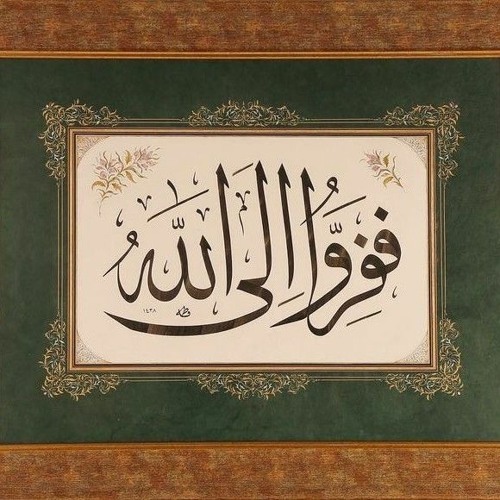 فَفِرُّوا اِلَى اللّٰهِ
١٤٣٨